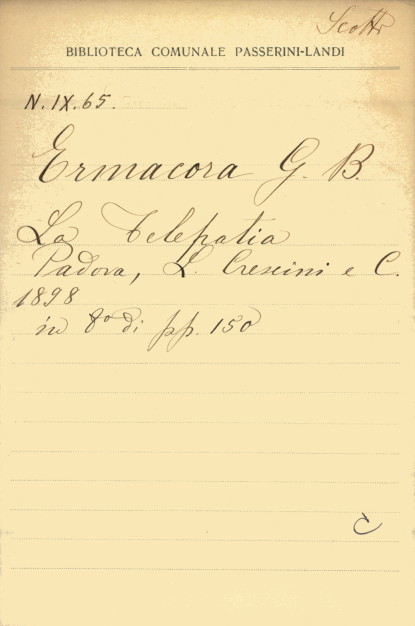 Scotti
BIBLIOTECA COMUNALE PASSERINI-LANDI
N.IX.65.
Ermacora G. B.
La Telepatia
Padova, L. Crescini e C.
1898
in 8° di pp. 150
C